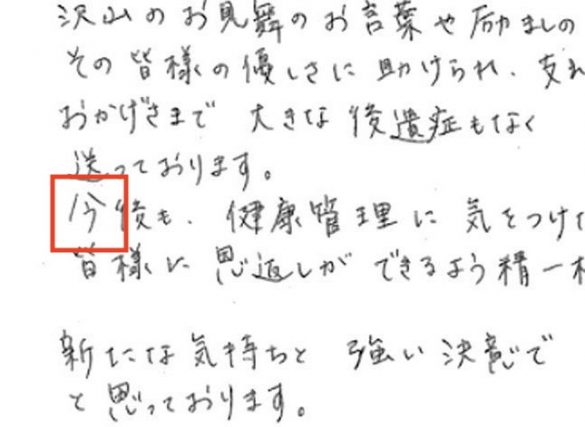 沢山のお見舞のお言葉や励ましの
その皆様の優しさに助けられ、支え
おかげさまで 大きな後遺症もなく
送っております。
今後も、健康管理に気をつけ
皆様に恩返しができるよう精一杯
新たな気持ちと 強い決意で
と思っております。